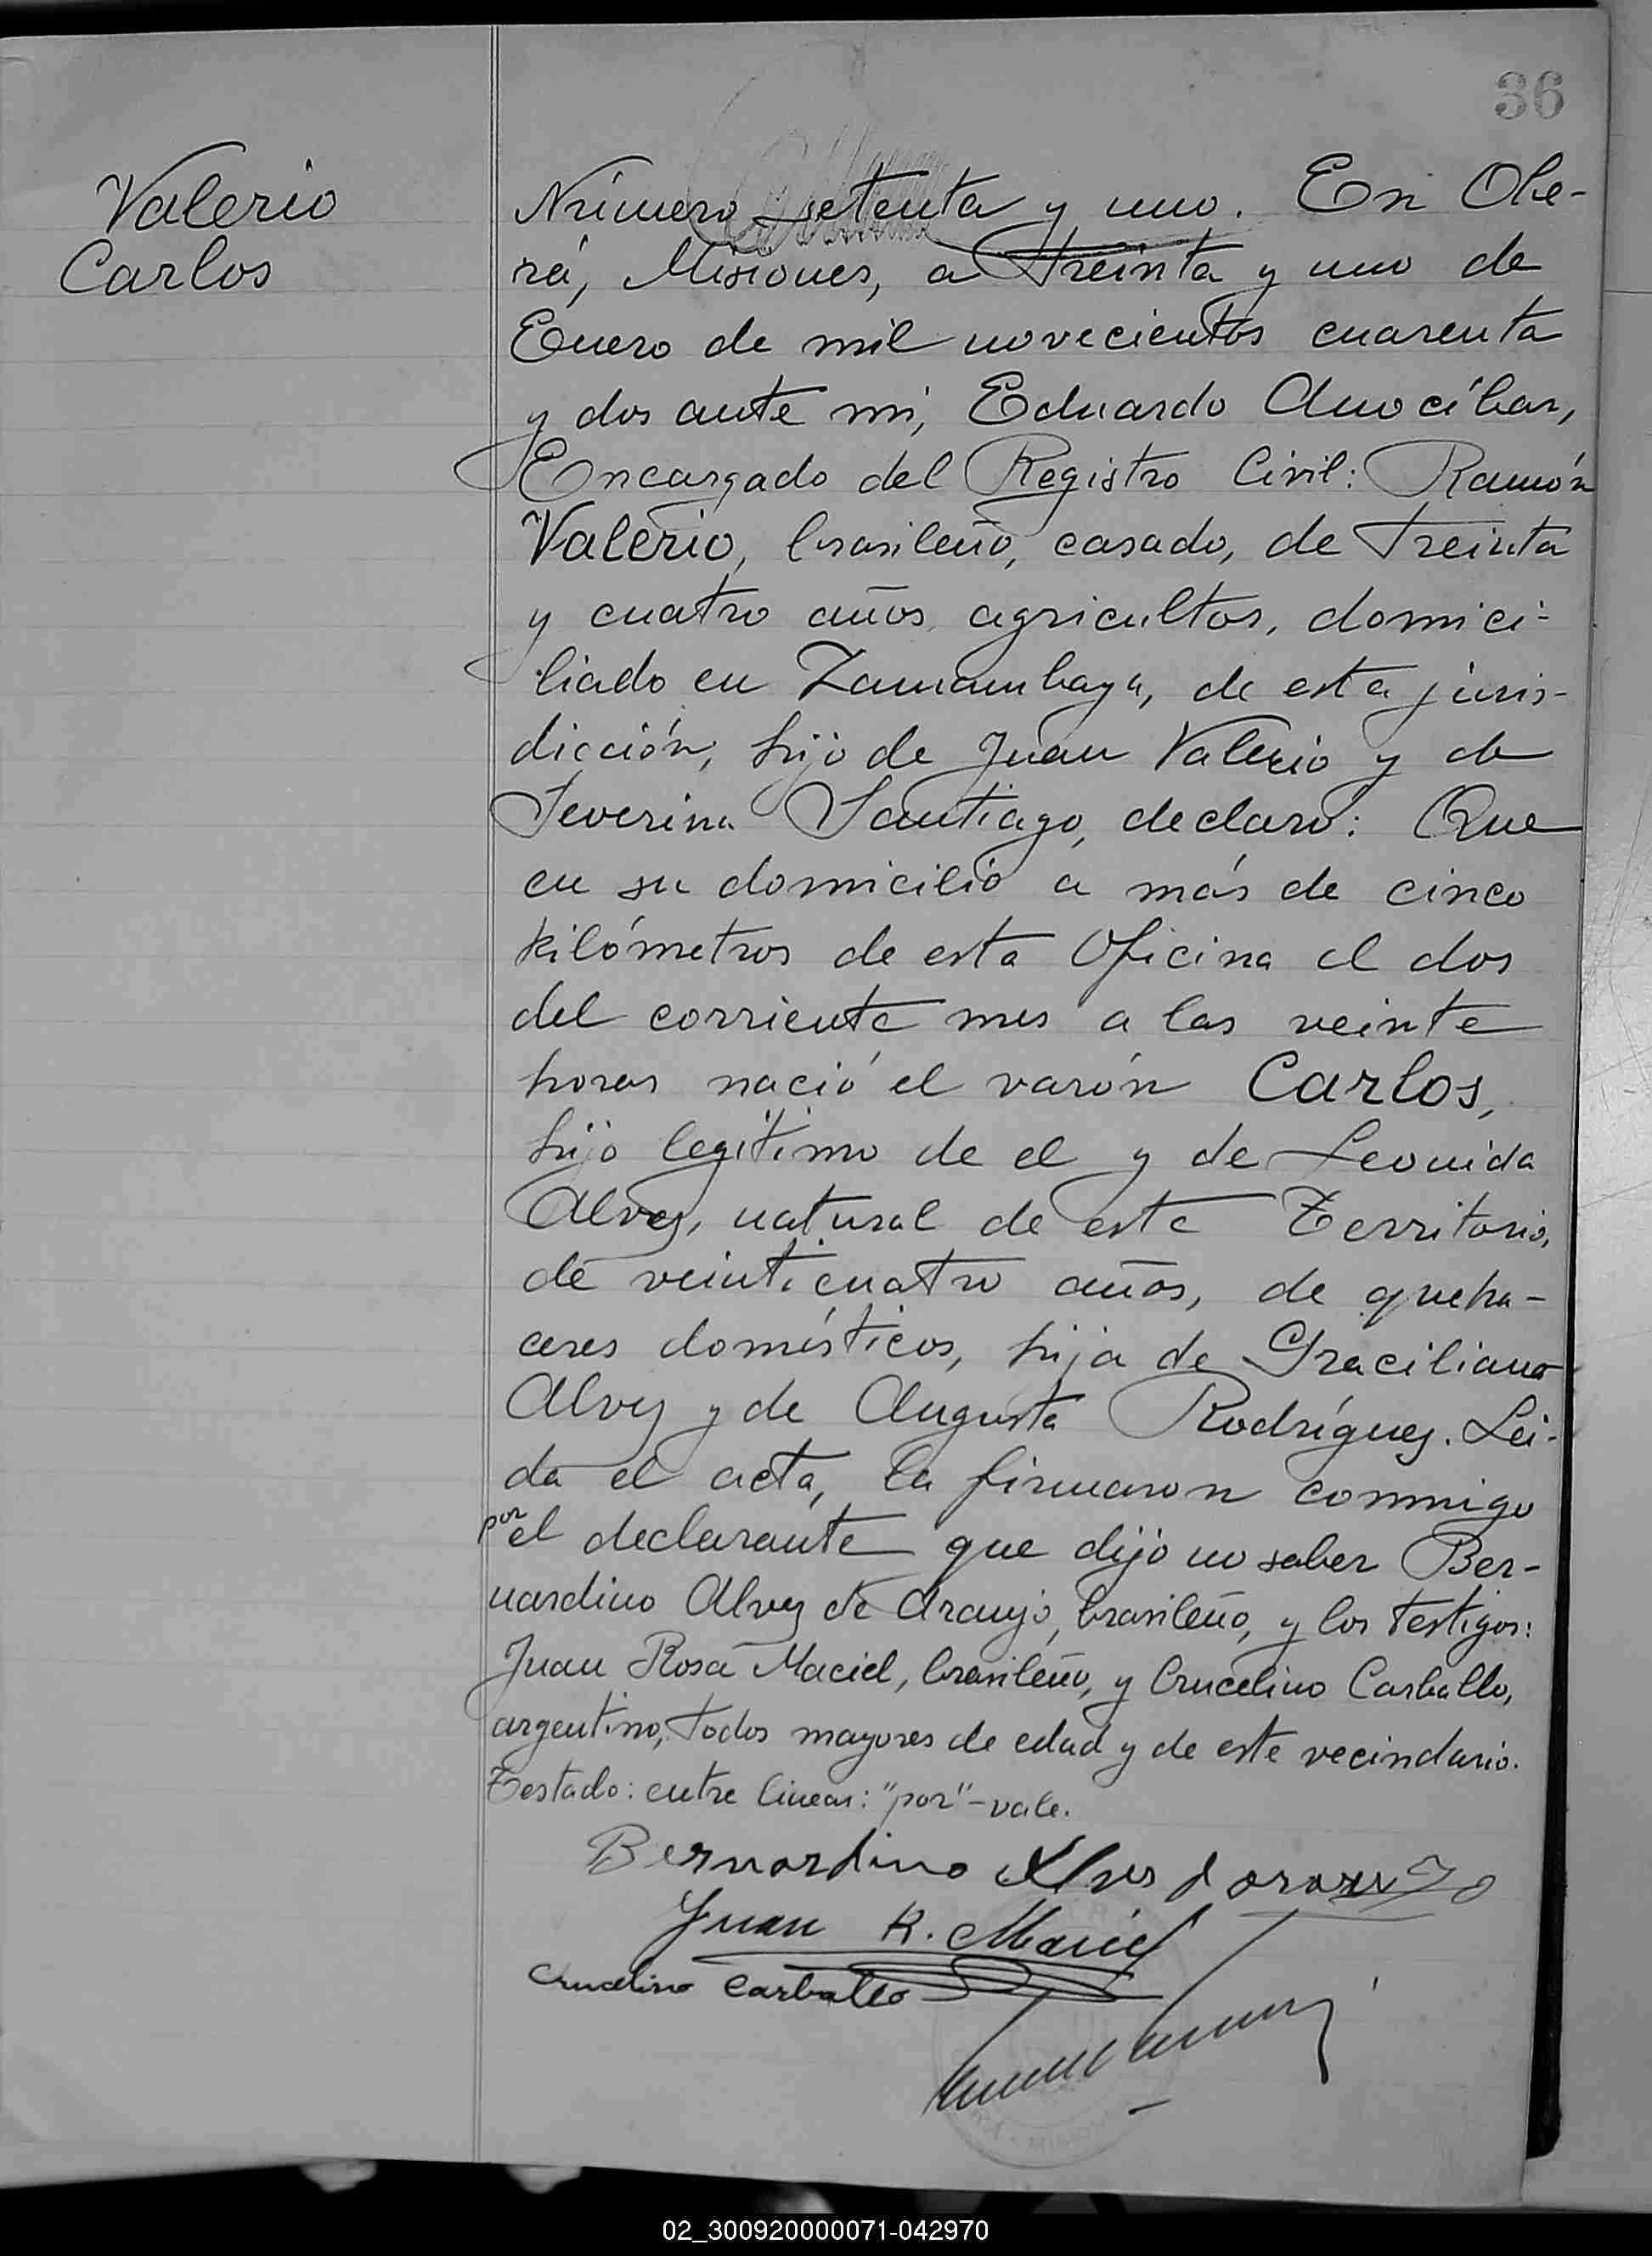 36
Valerio
Carlos
Número setenta y uno. En Obe-
rá, Misiones, a treinta y uno de
Enero de mil novecientos cuarenta
y dos ante mi, Eduardo Anocíbar,
Encargado del Registro Civil: Ramón
Valerio, brasileño, casado, de treinta
y cuatro años, agricultor, domici-
liado en Zamambaya, de esta juris-
dicción, hijo de Juan Valerio y de
Severina Santiago, declaró: Que
en su domicilio a más de cinco
kilómetros de esta Oficina el dos
del corriente mes a las veinte
horas nació el varón Carlos,
hijo legítimo de el y de Leonida
Alvez, natural de este Territorio,
de veinticuatro años, de queha-
ceres domésticos, hija de Graciliano
Alvez y de Augusta Rodríguez. Leí-
da el acta, la firmaron conmigo
por el declarante que dijo no saber Ber-
nardino Alvez de Araujo, brasileño, y los testigos:
Juan Rosa Maciel, brasileño, y Crucelino Carballo,
argentino, todos mayores de edad y de este vecindario.
Testado: entre lineas: "por" - vale.
Bernardino Alves d arauzo
Juan R. Maciel
Crucelino Carballo
02_300920000071-042970